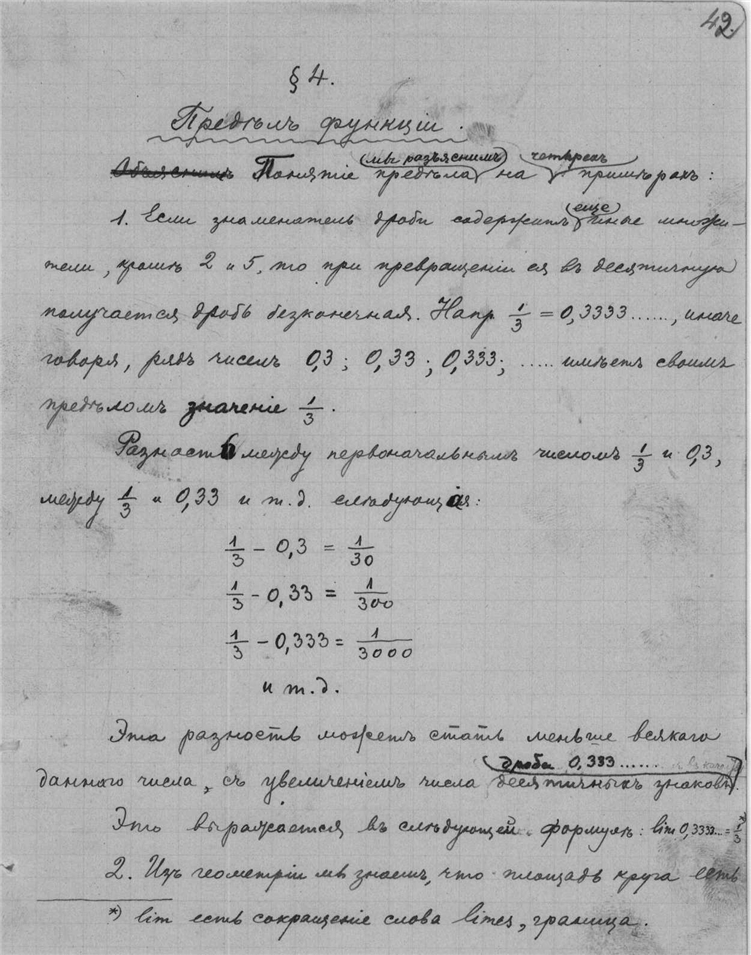 42.
§ 4.
Предѣлъ функціи.
Объяснимъ Понятіе предѣла (мы разъяснимъ) на четырехъ примѣрахъ:
1. Если знаменатель дроби содержитъ (еще) иные множи-
тели, кромѣ 2 и 5, то при превращеніи ея въ десятичную
получается дробь безконечная. Напр 1/3 = 0,3333......, иначе
говоря, рядъ чиселъ 0,3; 0,33; 0,333; ..... имѣетъ своимъ
предѣломъ значеніе 1/3.
Разность между первоначальнымъ числомъ 1/3 и 0,3,
между 1/3 и 0,33 и т.д. слѣдующая:
1/3 - 0,3 = 1/30
1/3 - 0,33 = 1/300
1/3 - 0,333 = 1/3000
и т.д.
Эта разность можетъ стать меньше всякаго
дроби 0,333......
даннаго числа, съ увеличеніемъ числа десятичныхъ знаковъ.
Это выражается въ слѣдующей формулѣ: lim 0,3333... = 1/3 *)
2. Изъ геометріи мы знаемъ, что площадь круга есть
*) lim есть сокращеніе слова limes, граница.